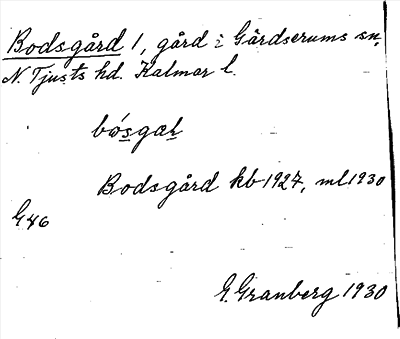 Bodsgård 1, gård i Gärdserums sn,
N. Tjusts hd. Kalmar l.
bósgaꞎ
Bodsgård kb 1927, ml 1930
G 46
G. Granberg 1930